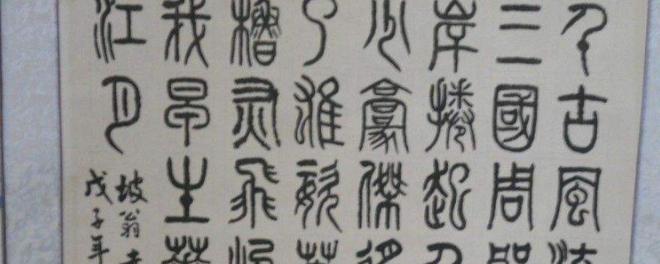 千古風流
三國周郎
岸捲起千
少豪傑遥
了雄姿英
櫓灰飛
我早生華
江月
坡翁赤
戊子年